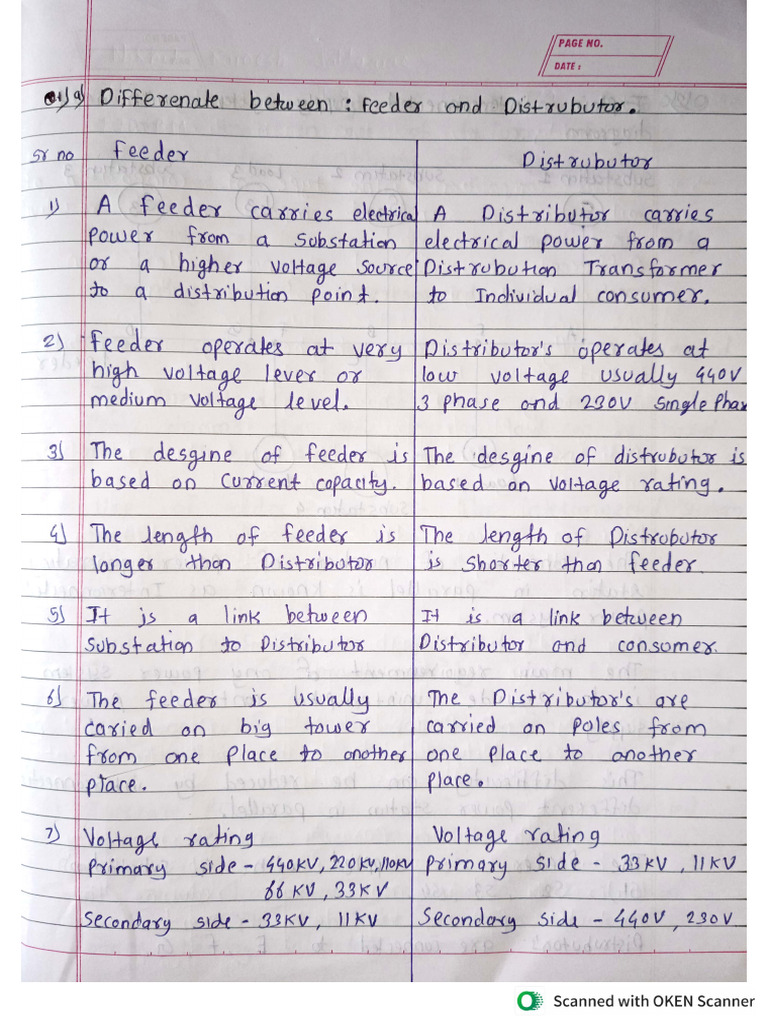 PAGE NO.
DATE :
Q1) a) Differenate between : Feeder and Distrubutor.
Sr no Feeder Distrubutor
1) A feeder carries electrical A Distributor carries
power from a Substation electrical power from a
or a higher voltage source Distrubution Transformer
to a distribution point. to Individual consumer.
2) Feeder operates at very Distributor's operates at
high voltage lever or low voltage usually 440V
medium voltage level. 3 phase and 230V Single Phas
3) The desgine of feeder is The desgine of distrubutor is
based on current capacity. based on voltage rating.
4) The length of feeder is The length of Distrubutor
longer than Distributor is shorter than feeder.
5) It is a link between It is a link between
Substation to Distributor Distributor and consumer.
6) The feeder is usually The Distributor's are
caried on big tower carried on poles from
from one place to another one place to another
place. place.
7) Voltage rating Voltage rating
Primary side - 440KV, 220KV, 110KV Primary side - 33KV, 11KV
66KV, 33KV
Secondary side - 33KV, 11KV Secondary side - 440V, 230V
Scanned with OKEN Scanner